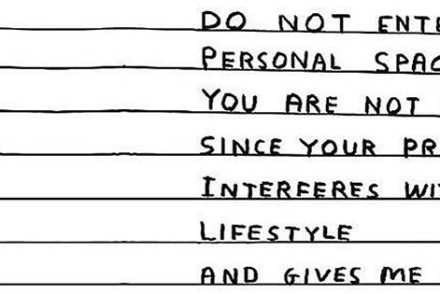 DO NOT ENTE
PERSONAL SPAC
YOU ARE NOT
SINCE YOUR PR
INTERFERES WI
LIFESTYLE
AND GIVES ME